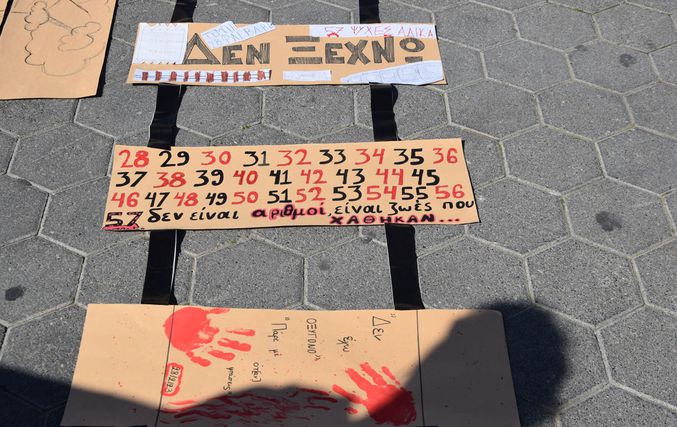 57 ΨΥΧΕΣ ΑΔΙΚΑ
ΔΕΝ ΞΕΧΝΩ
28 29 30 31 32 33 34 35 36
37 38 39 40 41 42 43 44 45
46 47 48 49 50 51 52 53 54 55 56
57 δεν είναι αριθμοί, είναι ζωές που
ΧΑΘΗΚΑΝ...
"Δεν
Έχω
ΟΞΥΓΟΝΟ"
"Πάρε με
28/2/23